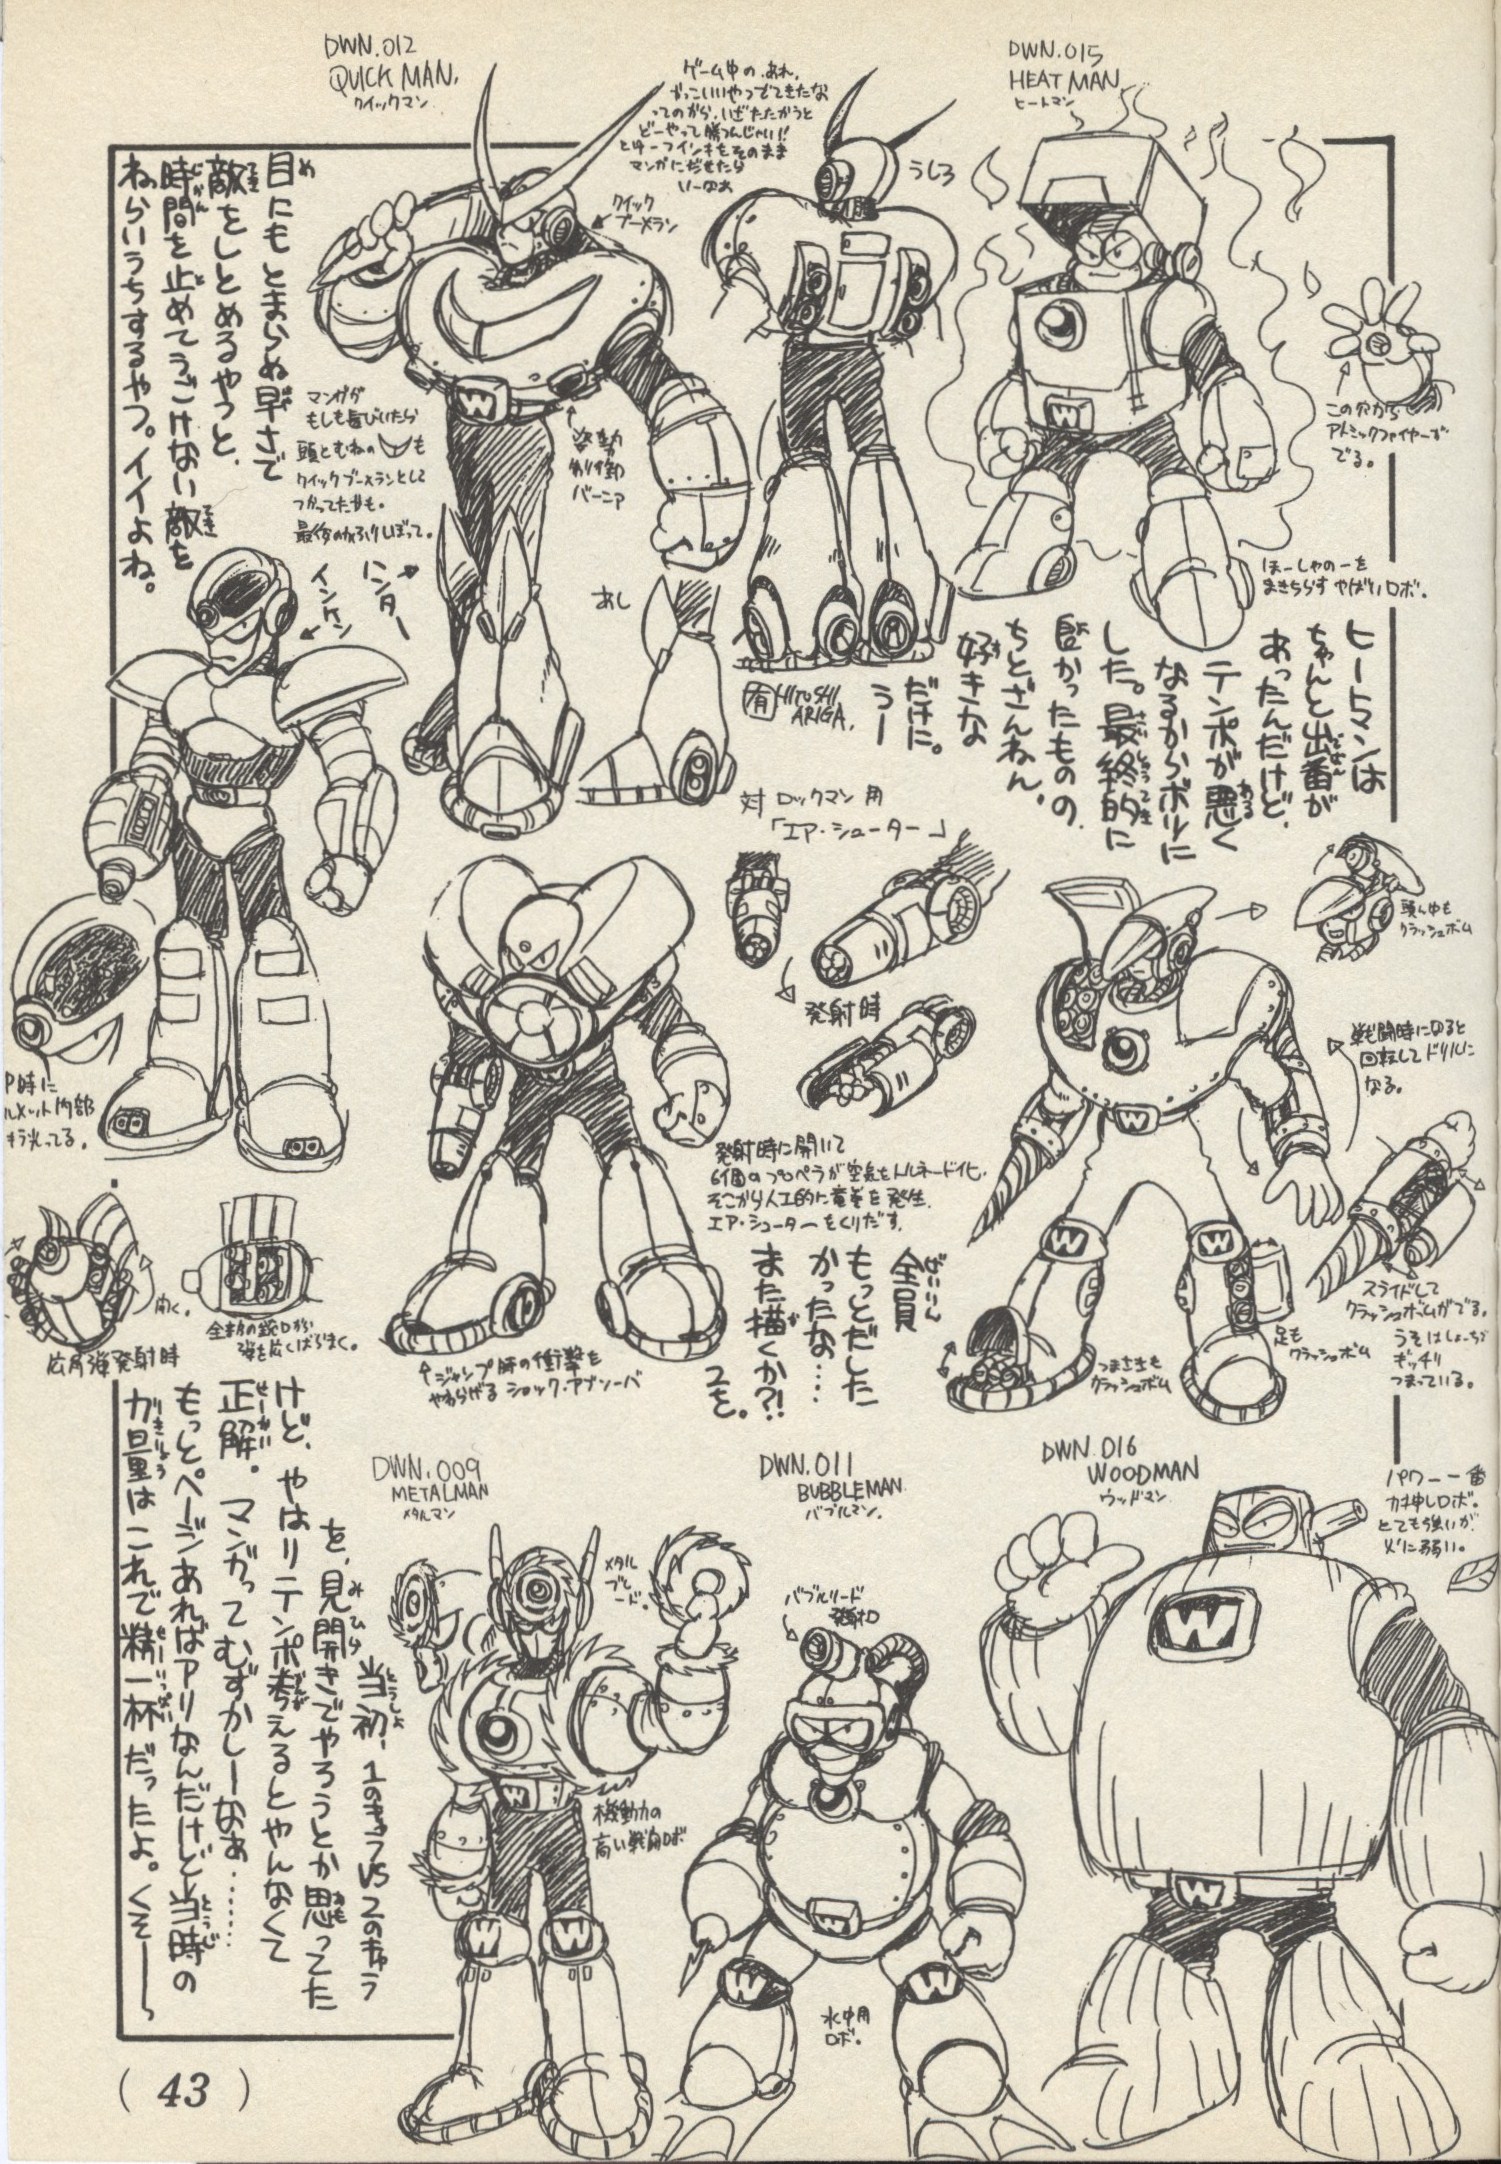 DWN.012
QUICK MAN.
クイックマン
ゲーム中の、あれ、
かっこいいやつでてきたな
ってのから、いざたたかうと
どーやって勝つんじゃい!!
マンガにだせたら
DWN.015
HEAT MAN
ヒートマン
目にもとまらぬ早さで
敵をしとめるやつと、
時間を止めてうごけない敵を
ねらいうちするやつ。イイよね。
クイック
ブーメラン
うしろ
この穴から
アトミックファイヤーが
でる。
マンガが
もしも長びいたら
頭とむねの
も
クイックブーメランとして
つかってたかも。
姿勢
制御
バーニア
ほーしゃのーを
まきちらすやばいロボ。
ハンター
インケン
あし
有 HITOSHI
ARIGA.
ヒートマンは
ちゃんと出番が
あったんだけど、
テンポが悪く
なるからボツに
した。最終的に
良かったものの
ちとざんねん。
好きな
だけに。
うー
対ロックマン用
「エア・シューター」
発射時
頭ん中も
クラッシュボム
戦闘時になると
回転してドリルに
なる。
発射時に開いて
6個のプロペラが空気をトルネード化。
そこから人工的に竜巻を発生、
エア・シューターをくりだす。
開く。
広角弾発射時
↑ジャンプ時の衝撃を
やわらげるショック・アブソーバ
スライドして
クラッシュボムがでる。
うそはしょーちだ
ギッチリ
つまっている。
足も
クラッシュボム
つまさきも
クラッシュボム
全員
もっとだした
かったな……
また描くか?!
2を。
DWN.009
METALMAN
メタルマン
DWN.011
BUBBLEMAN
バブルマン.
DWN.016
WOODMAN
ウッドマン
パワー一番
力押しロボ。
とても強いが
火に弱い。
メタル
ブレ
ード。
バブルリード
発射口
機動力の
高い戦闘ロボ
水中用
ロボ。
当初、1のきゅうVS2のきゅう
を、見開きでやろうとか思ってた
けど、やはりテンポ考えるとやんなくて
正解。マンガってむずかしーなあ……
もっとページあればアリなんだけど当時の
力量はこれで精一杯だったよ。くそ――〜
( 43 )